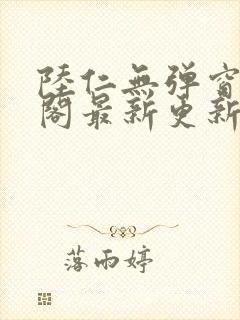 陸仁無弹窗
阁最新更新
落雨婷